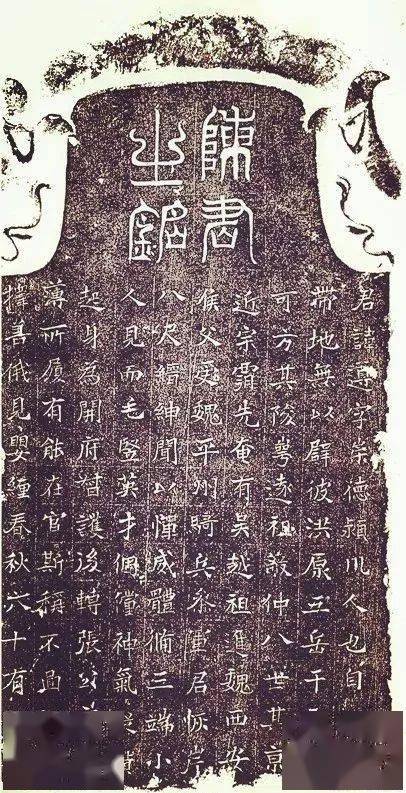 陳君
之銘
君諱遵字崇德潁川人也自
帶地無以辟彼洪原五岳干
可方其陵粵遠祖敬仲八世其京
近宗霸先奄有吳越祖進魏西安
侯父庭魏平州騎兵參軍君恢岸
八尺縉紳聞以慑威體脩三端小
人見而毛豎英才倜儻神氣
起身為開府督護後轉張
薄所履有能在官斯稱不
擇善俄見嬰纏春秋六十有